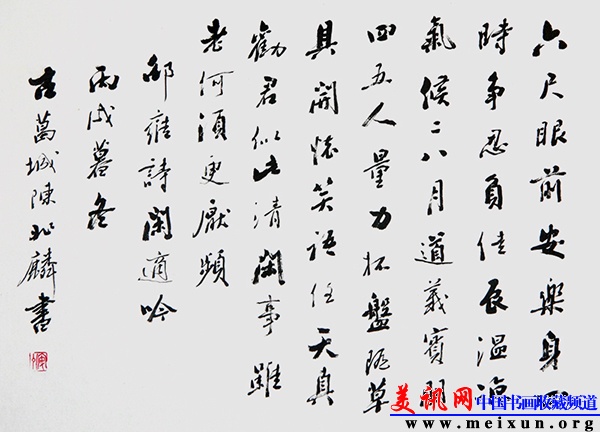 六尺眼前安樂身四
時争忍負佳辰温凉
氣候二八月道義賓朋
四五人量力杯盤隨草
具開懷笑語任天真
勸君似此清閑事雖
老何須更厭頻
邵雍詩閑適吟
丙戌暮冬
古葛城陳兆麟書
美讯网 中国书画收藏频道
www.meixun.org